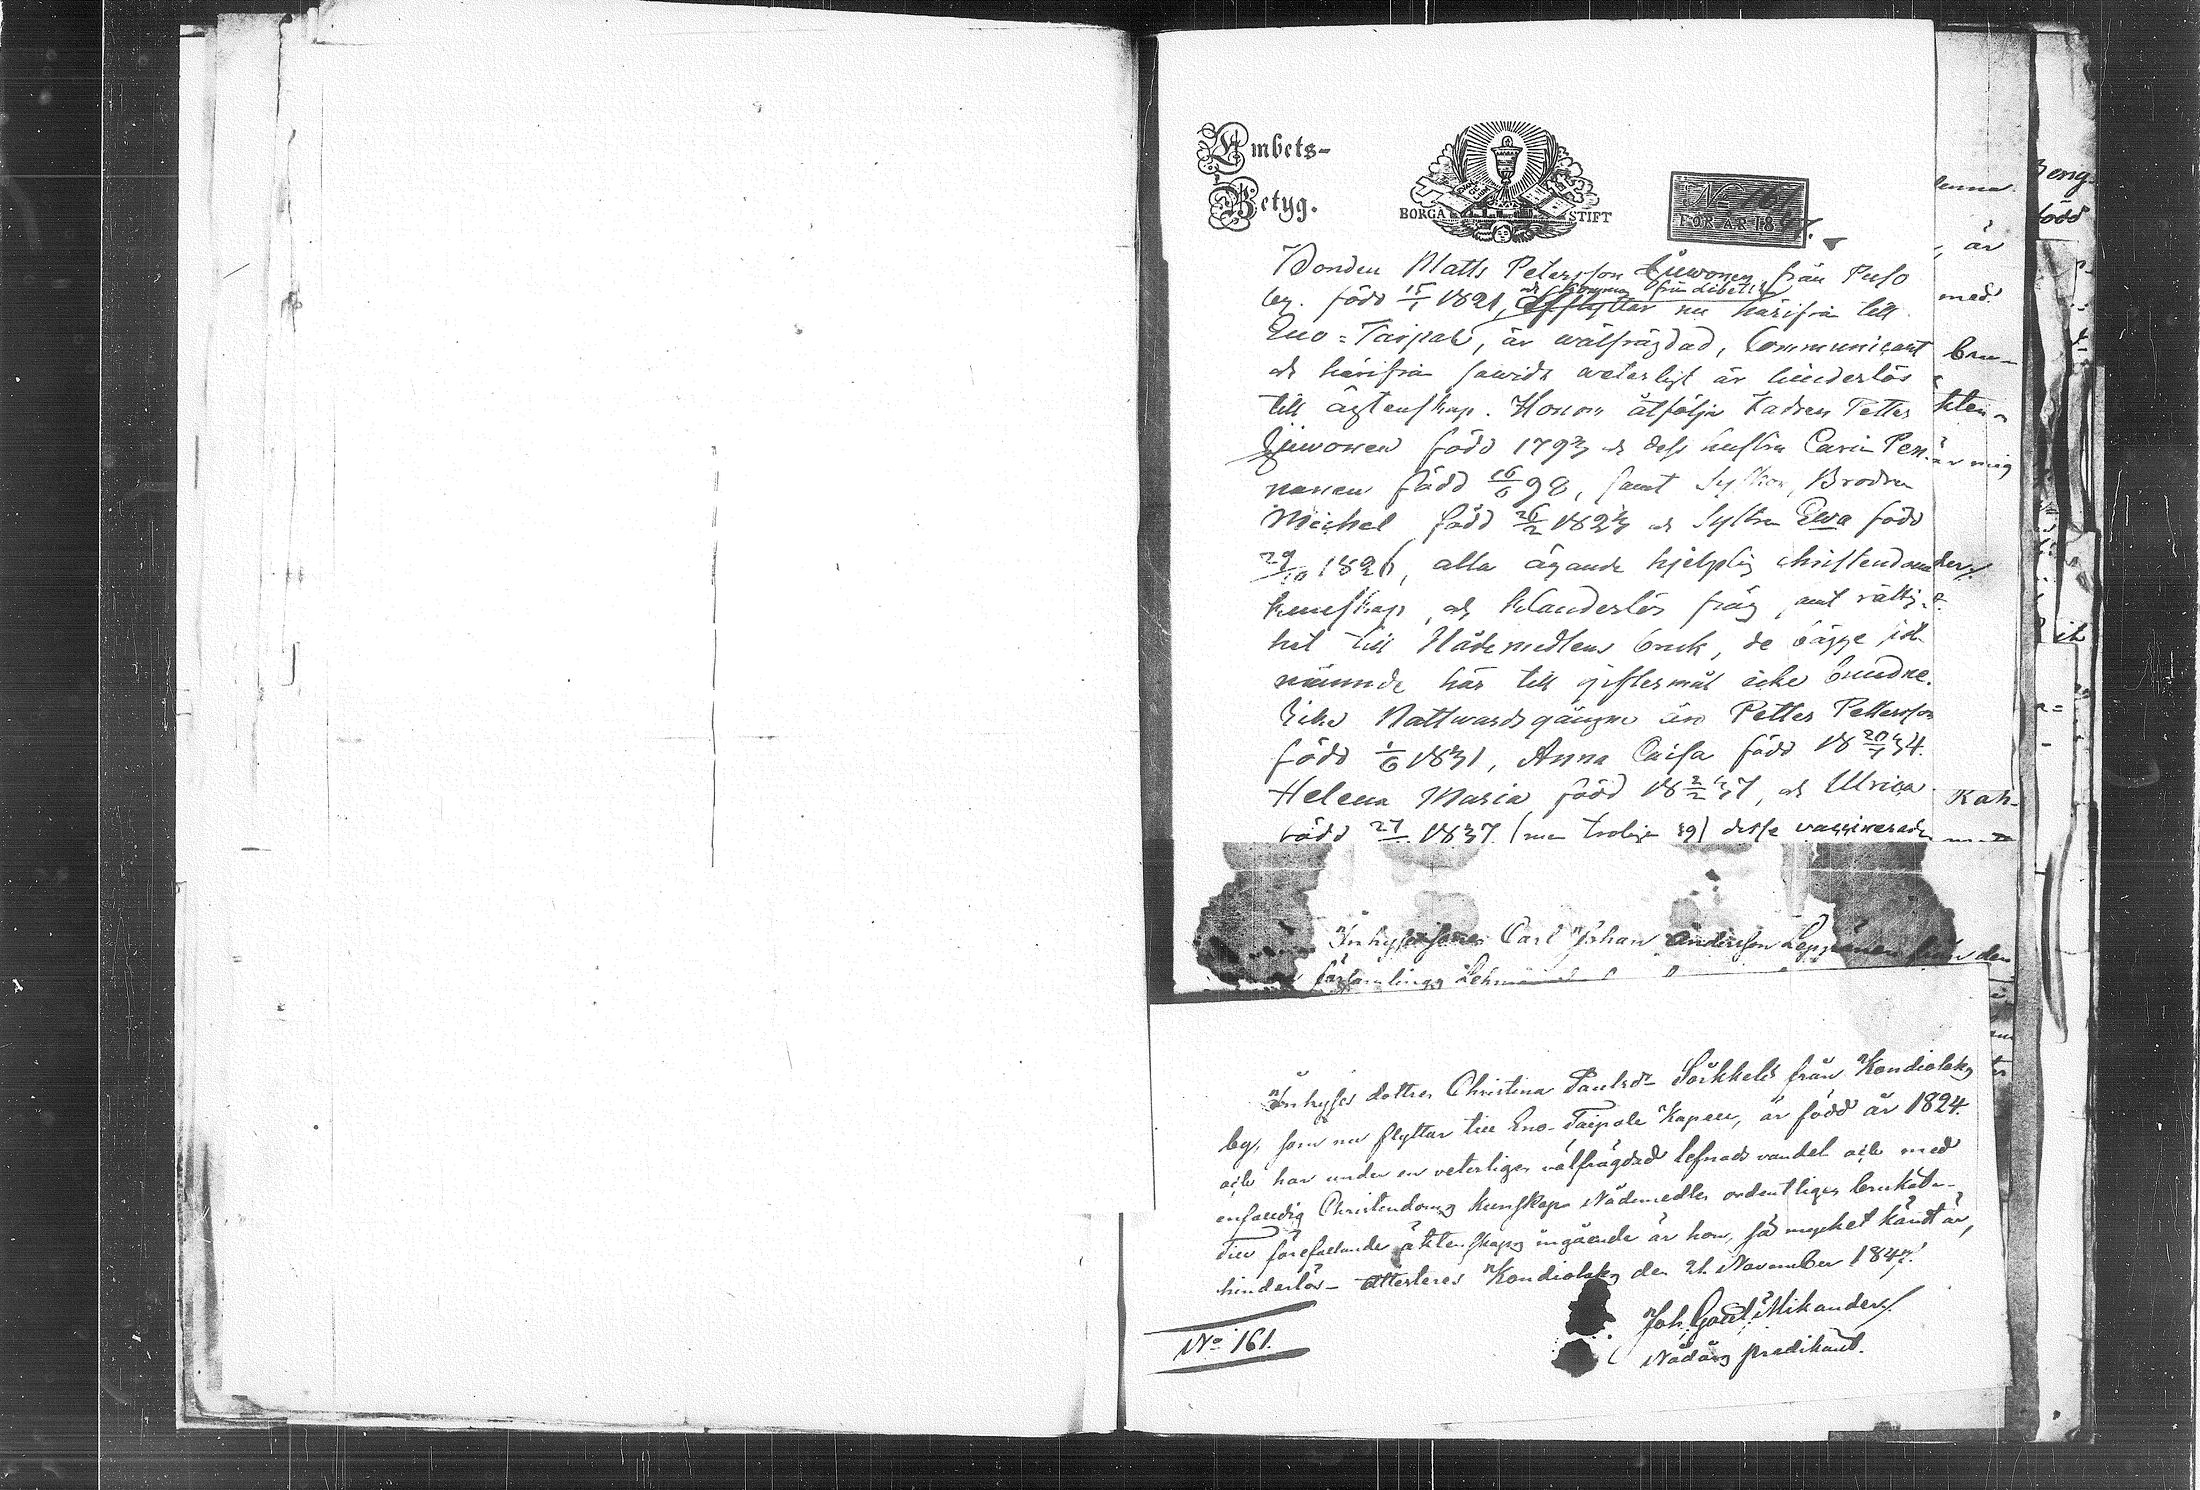 Embets-
Betyg.
BORGÅ STIFT
No 161
FÖR ÅR 1847.
Bonden Matts Petersson från Puso
by. född 15/1 1821, nu härifrån till
Eno-Taipale, är wälfrägdad, Communicant
och härifrån sawidt weterligt är hinderlös
till ägtenskap. Honom åtfölja Fadren Petter
född 1793 och dess hustru Carin Pen-
nanen född 16/6 98, samt Syskon, Brodren
Michel född 26/2 1823 och Systren Ewa född
29/10 1826, alla ägande hjelplig christendoms
kunskap, och klanderlös fräg, samt rättig-
het till Nådemedlens bruk, de bägge sist
nämnde här till giftermål icke bundne.
Icke Nattwardsgångne äro Petter Pettersson
född 1/6 1831, Anna Caisa född 18 20/7 34.
Helena Maria född 18 2/2 37, och Ulrica
född 27 1837 (men trolige 39) desse vaccinerade
Inhyses sonen Carl Johan Andersson Leppänen från den
församlings
Inhyses dottren Christina Paulsdr Sorkkelis från Kondiolaks
by, som nu flyttar till Eno-Taipale Kapell, är född år 1824
och har under en veterligen välfrägdad lefnads vandel och med
enfaldig Christendoms kunskap Nådemedlen ordentligen brukat.
Till förefallande äktenskaps ingående är hon, så mycket kändt är,
hinderlös - Attesteras Kondiolaks den 21 November 1847.
Joh. Gust. Mikander
Nådårs predikant.
No 161.
är
med
Kah-
född